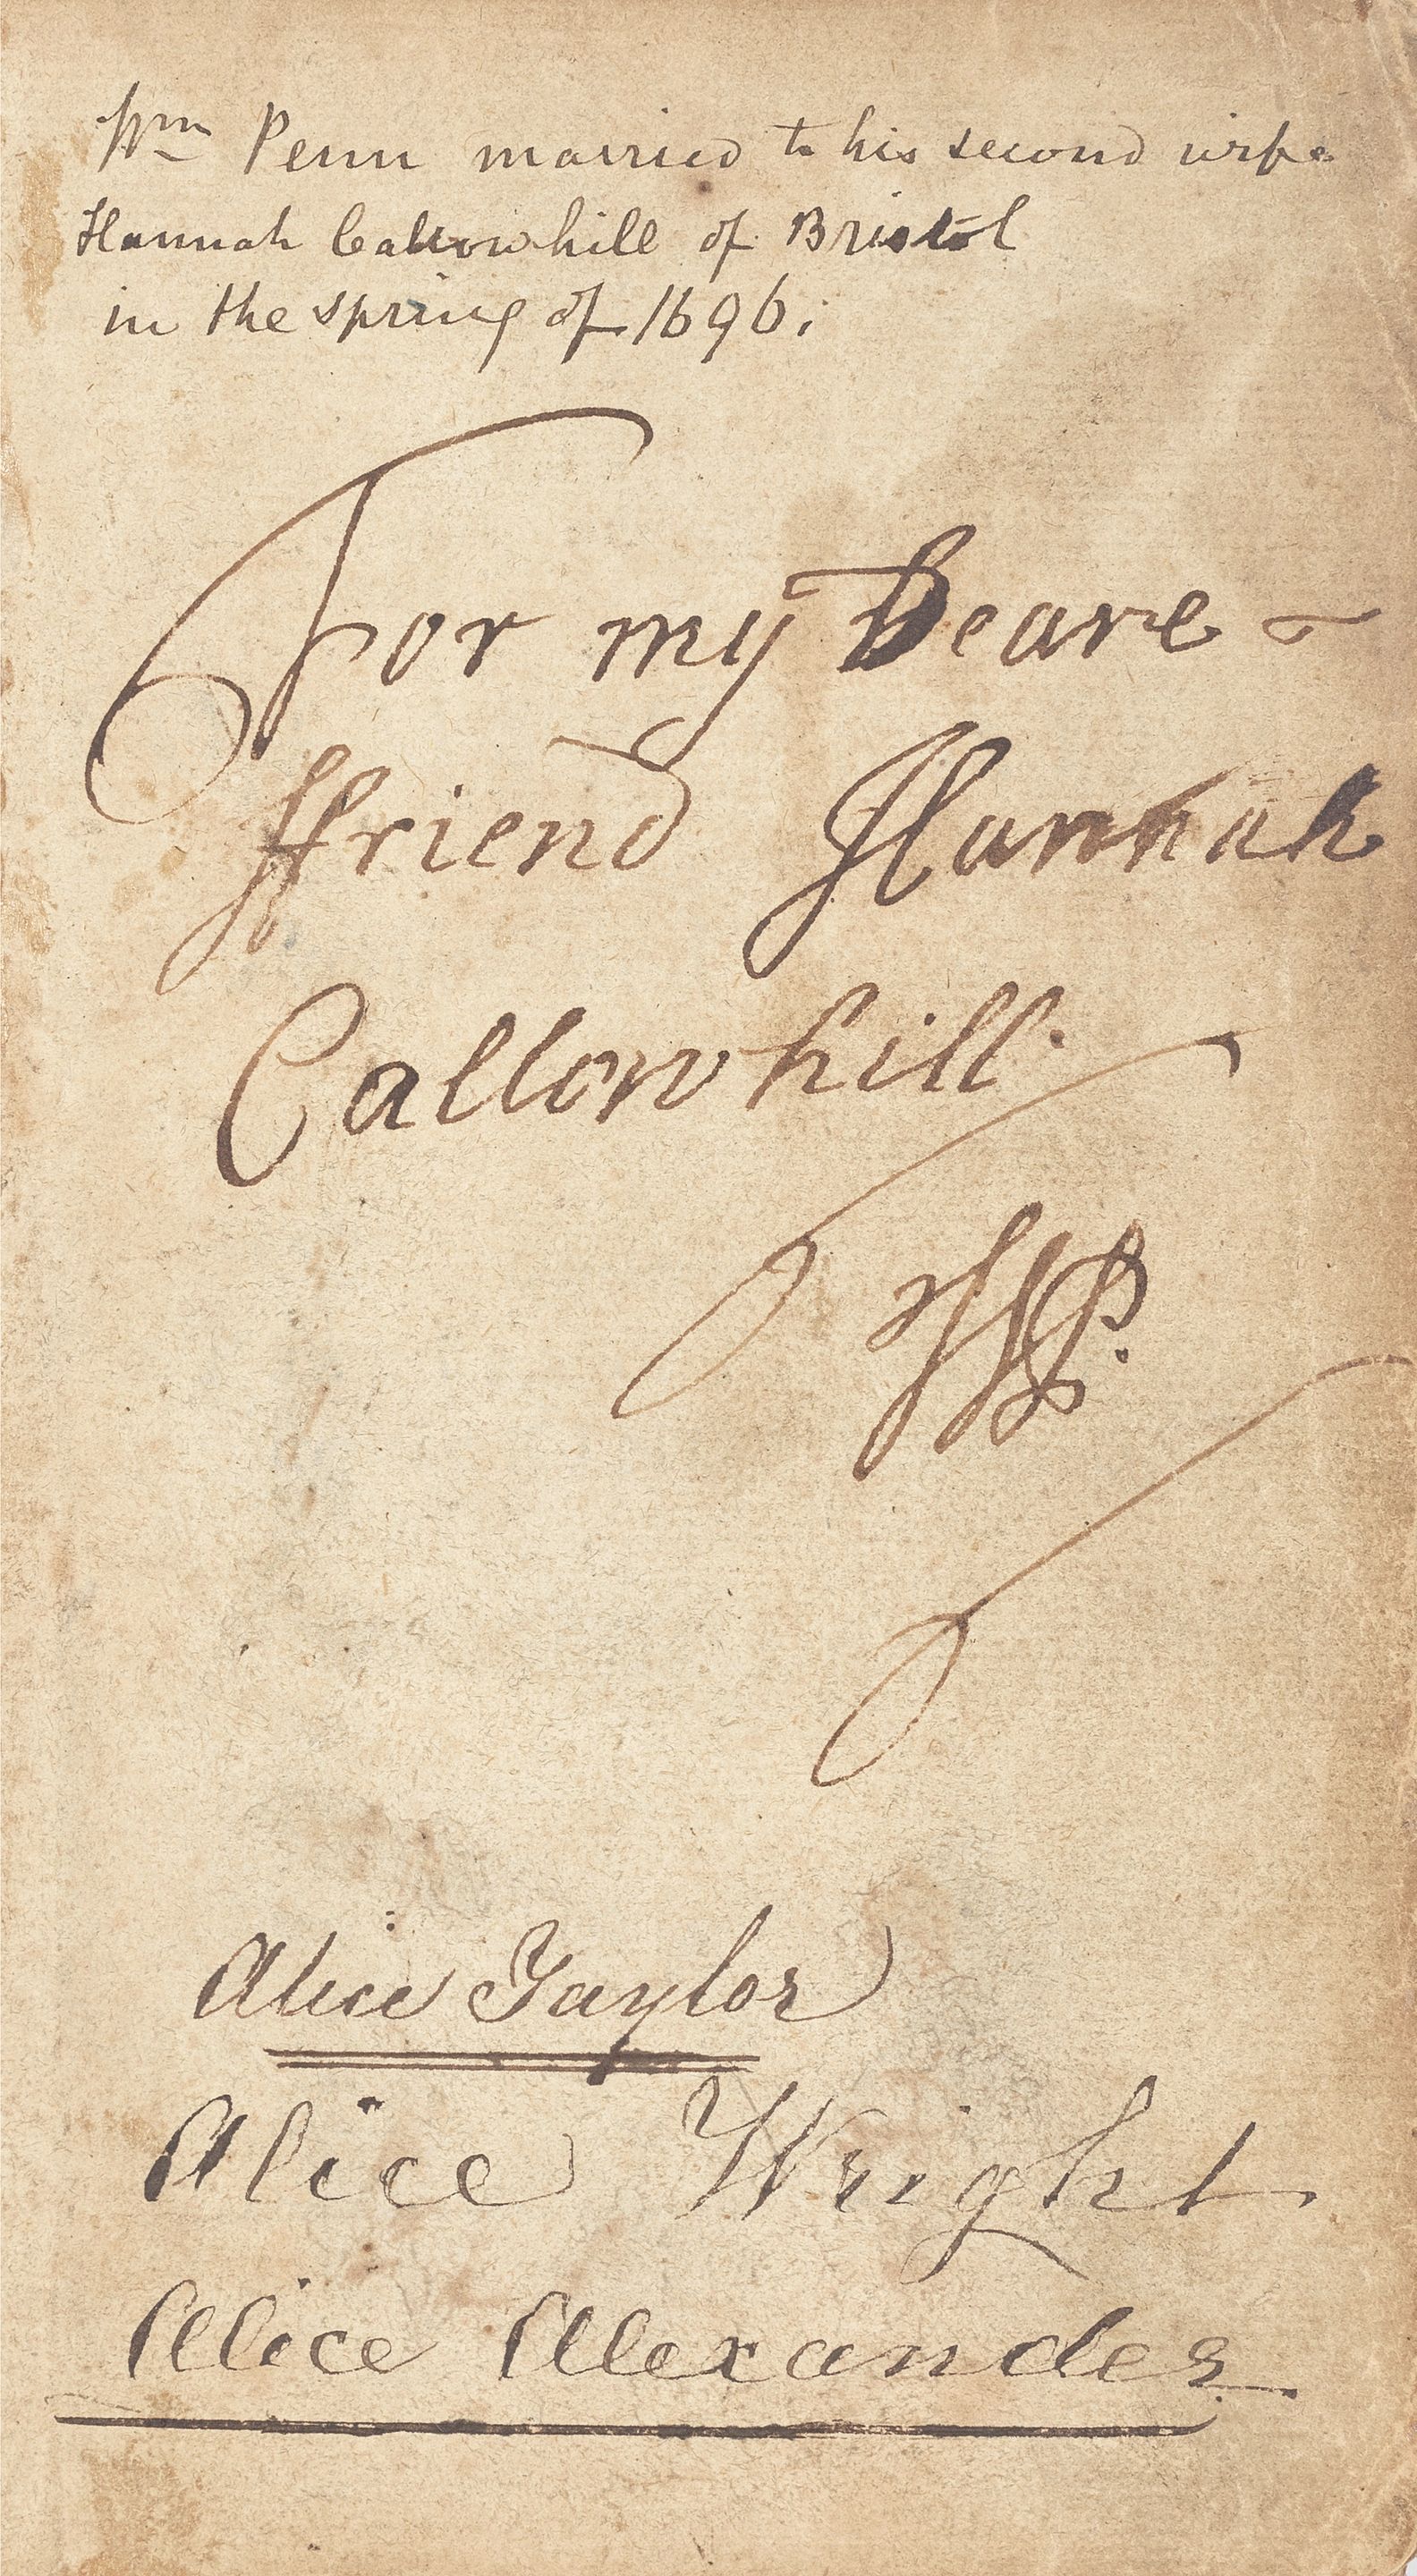 Wm Penn married to his second wife
Hannah Callowhill of Bristol
in the spring of 1696.
For my Deare
ffriend Hannah
Callowhill.
WP.
Alice Taylor
Alice Wright
Alice Alexander